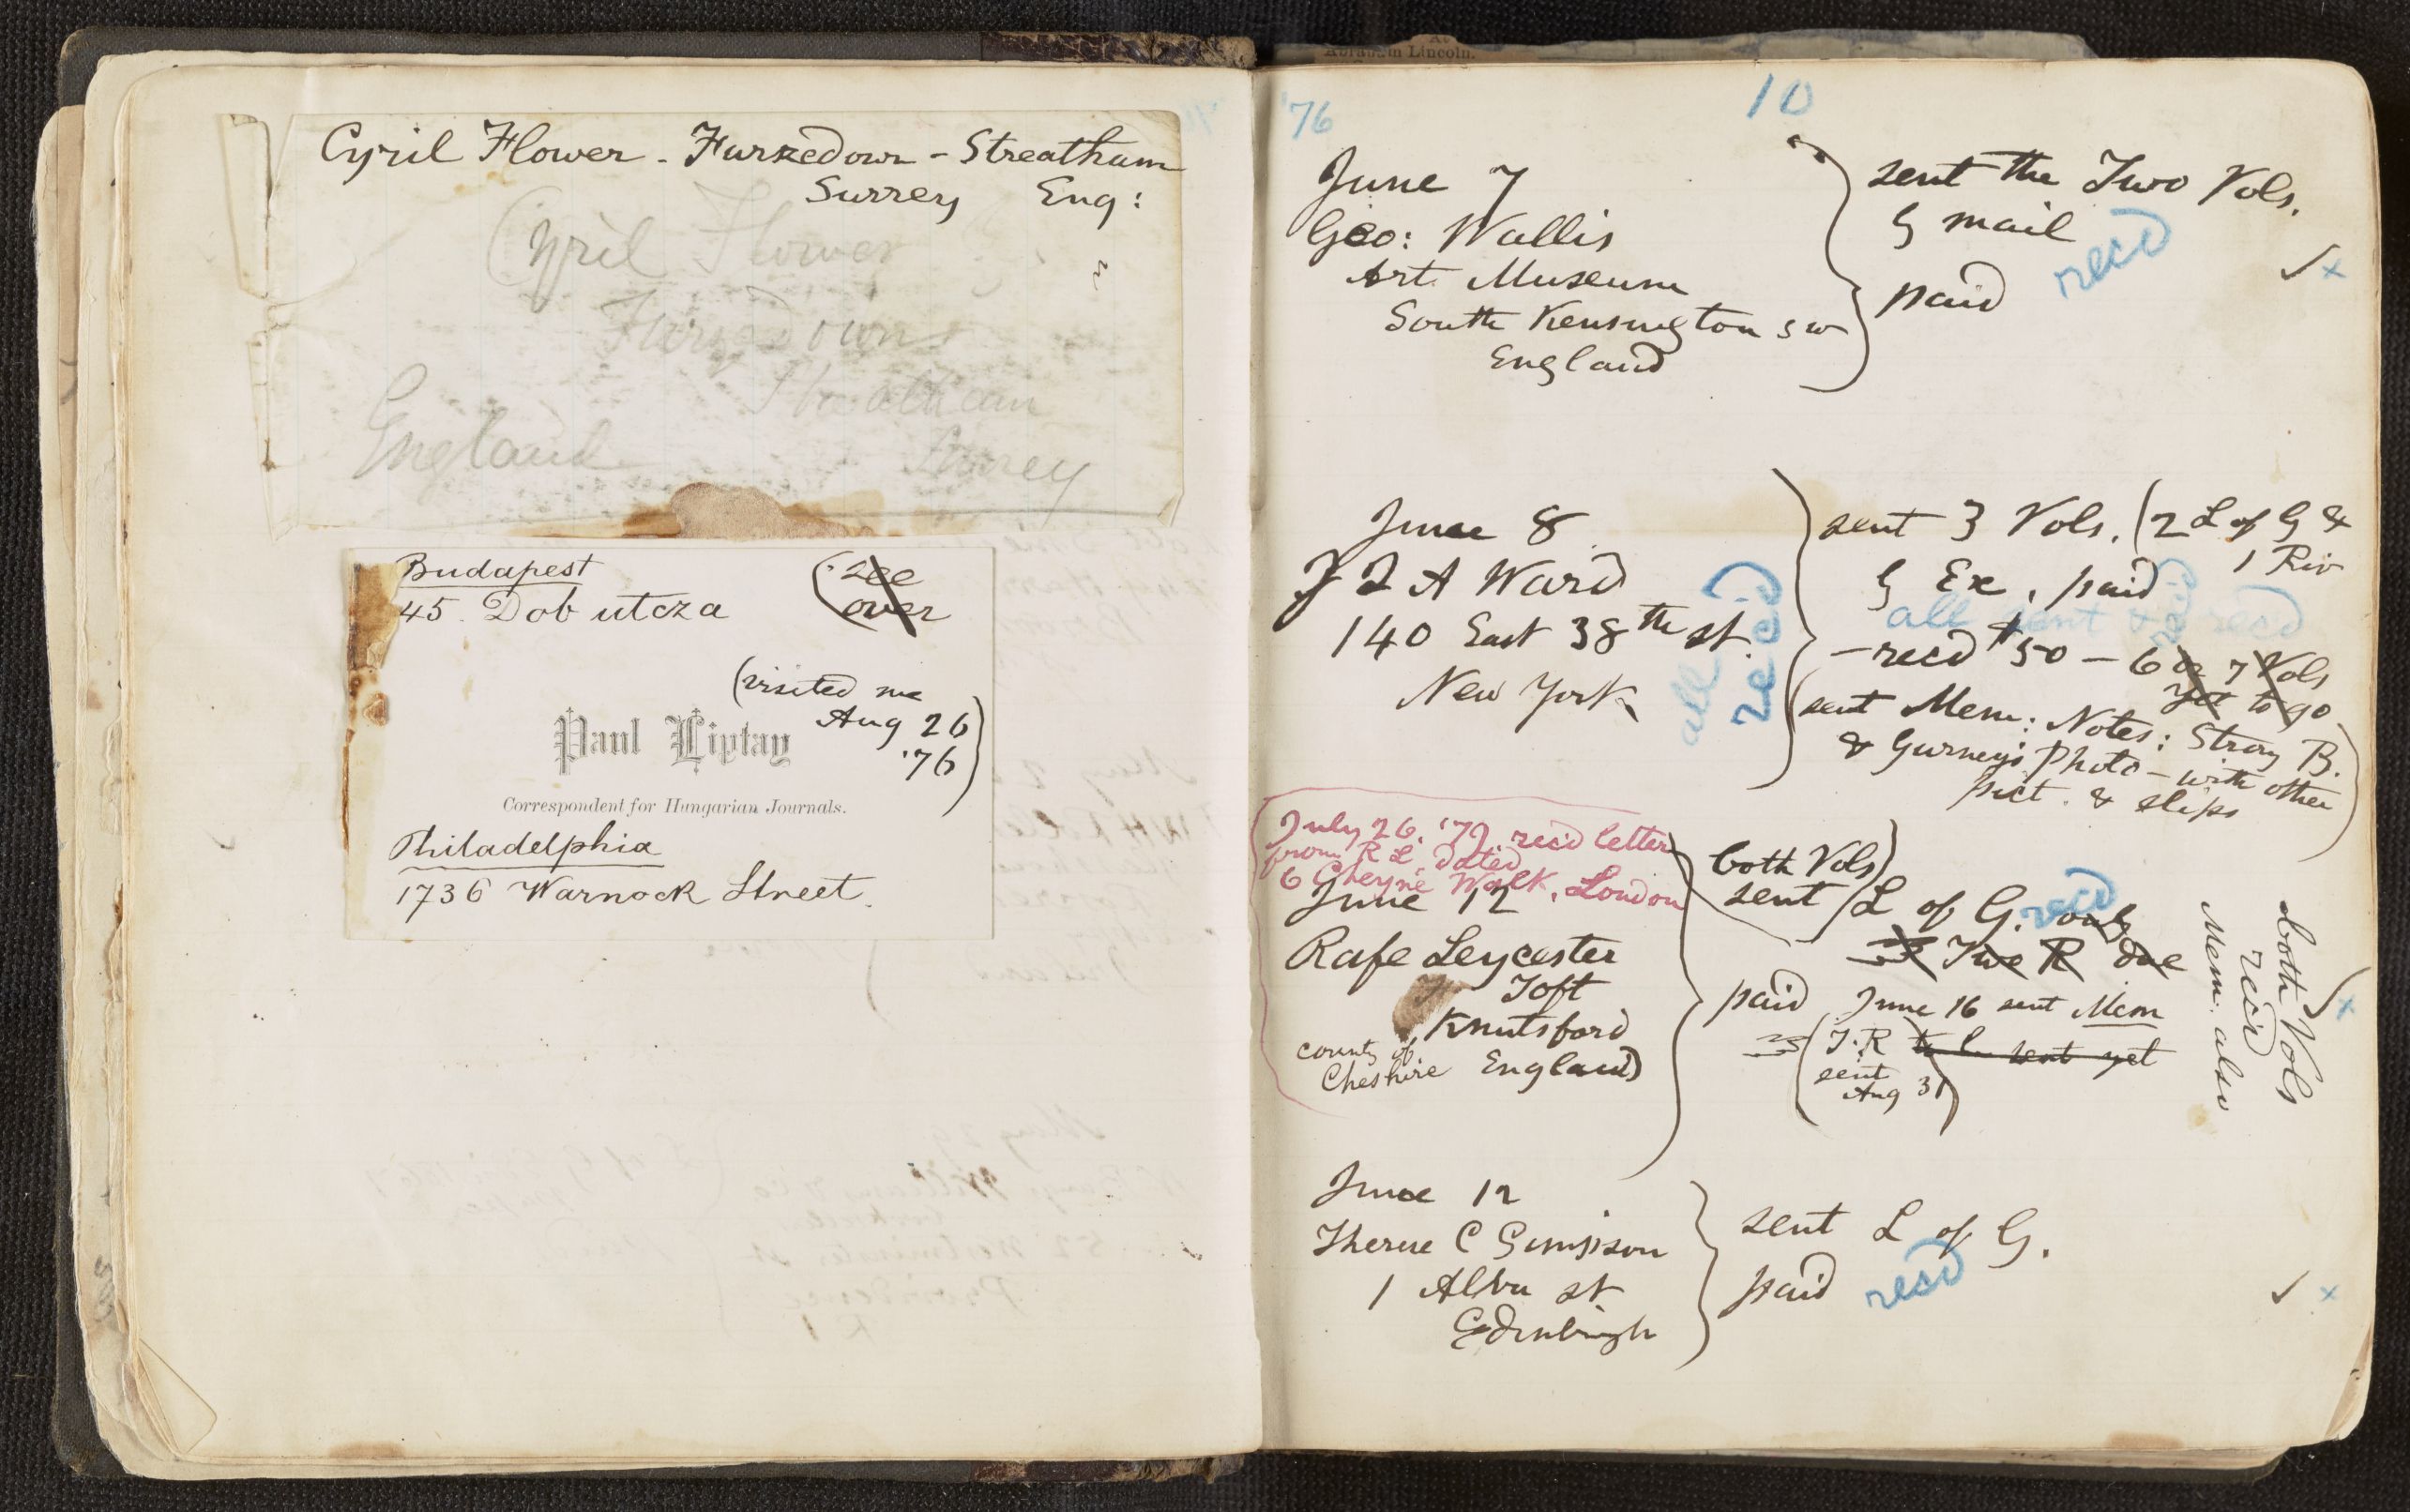 Cyril Flower - Furzedown - Streatham
Surrey Eng:
Cyril Flower
Furzedown
Streatham
England Surrey
Budapest
45. Dob utcza
(see
over
(visited me
Aug 26
'76)
Paul Liptay
Correspondent for Hungarian Journals.
Philadelphia
1736 Warnock Street.
Abraham Lincoln.
'76
10
June 7
Geo: Wallis
Art Museum
South Kensington s w
England
sent the Two Vols.
by mail
paid
rec'd
June 8
J Q A Ward
140 East 38th st.
New York
all
rec'd
sent 3 Vols. (2 L of G &
1 Riv
by Ex, paid
all sent & rec'd
rec'd
- recd $50 - 6 or 7 Vols
yet to go
(sent Mem: Notes: Strong B.
& Gurney's Photo - with other
pict. & slips)
July 26. '77. rec'd letter
from R L dated
6 Cheyne Walk, London
June 12
Rafe Leycester
Toft
Knutsford
county of
Cheshire England
both Vols
sent
L of G. only
rec'd
Two R due
paid June 16 sent Mem
T.R to be sent yet
sent
Aug 31
both Vols
rec'd
Mem. also
June 12
Therese C Simpson
1 Alva st
Edinburgh
sent L of G.
paid
rec'd